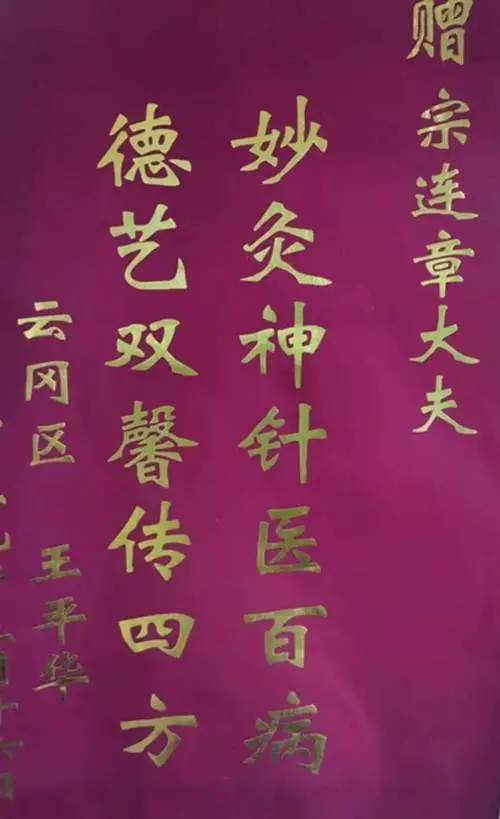 赠
宗连章大夫
妙灸神针医百病
德艺双馨传四方
云冈区 王平华